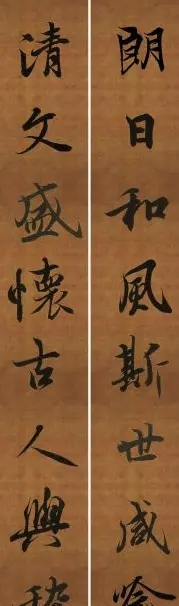 朗日和風斯世咸
清文盛懷古人興